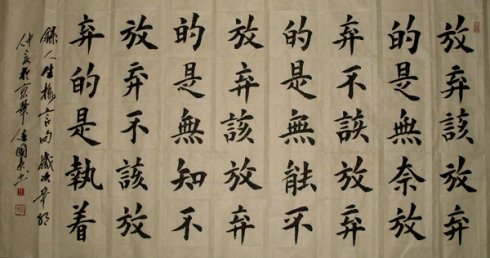 放弃該放弃
的是無奈放
弃不該放弃
的是無能不
放弃該放弃
的是無知不
放弃不該放
弃的是執着
錄人生格言句歲次辛卯
仲夏於京華